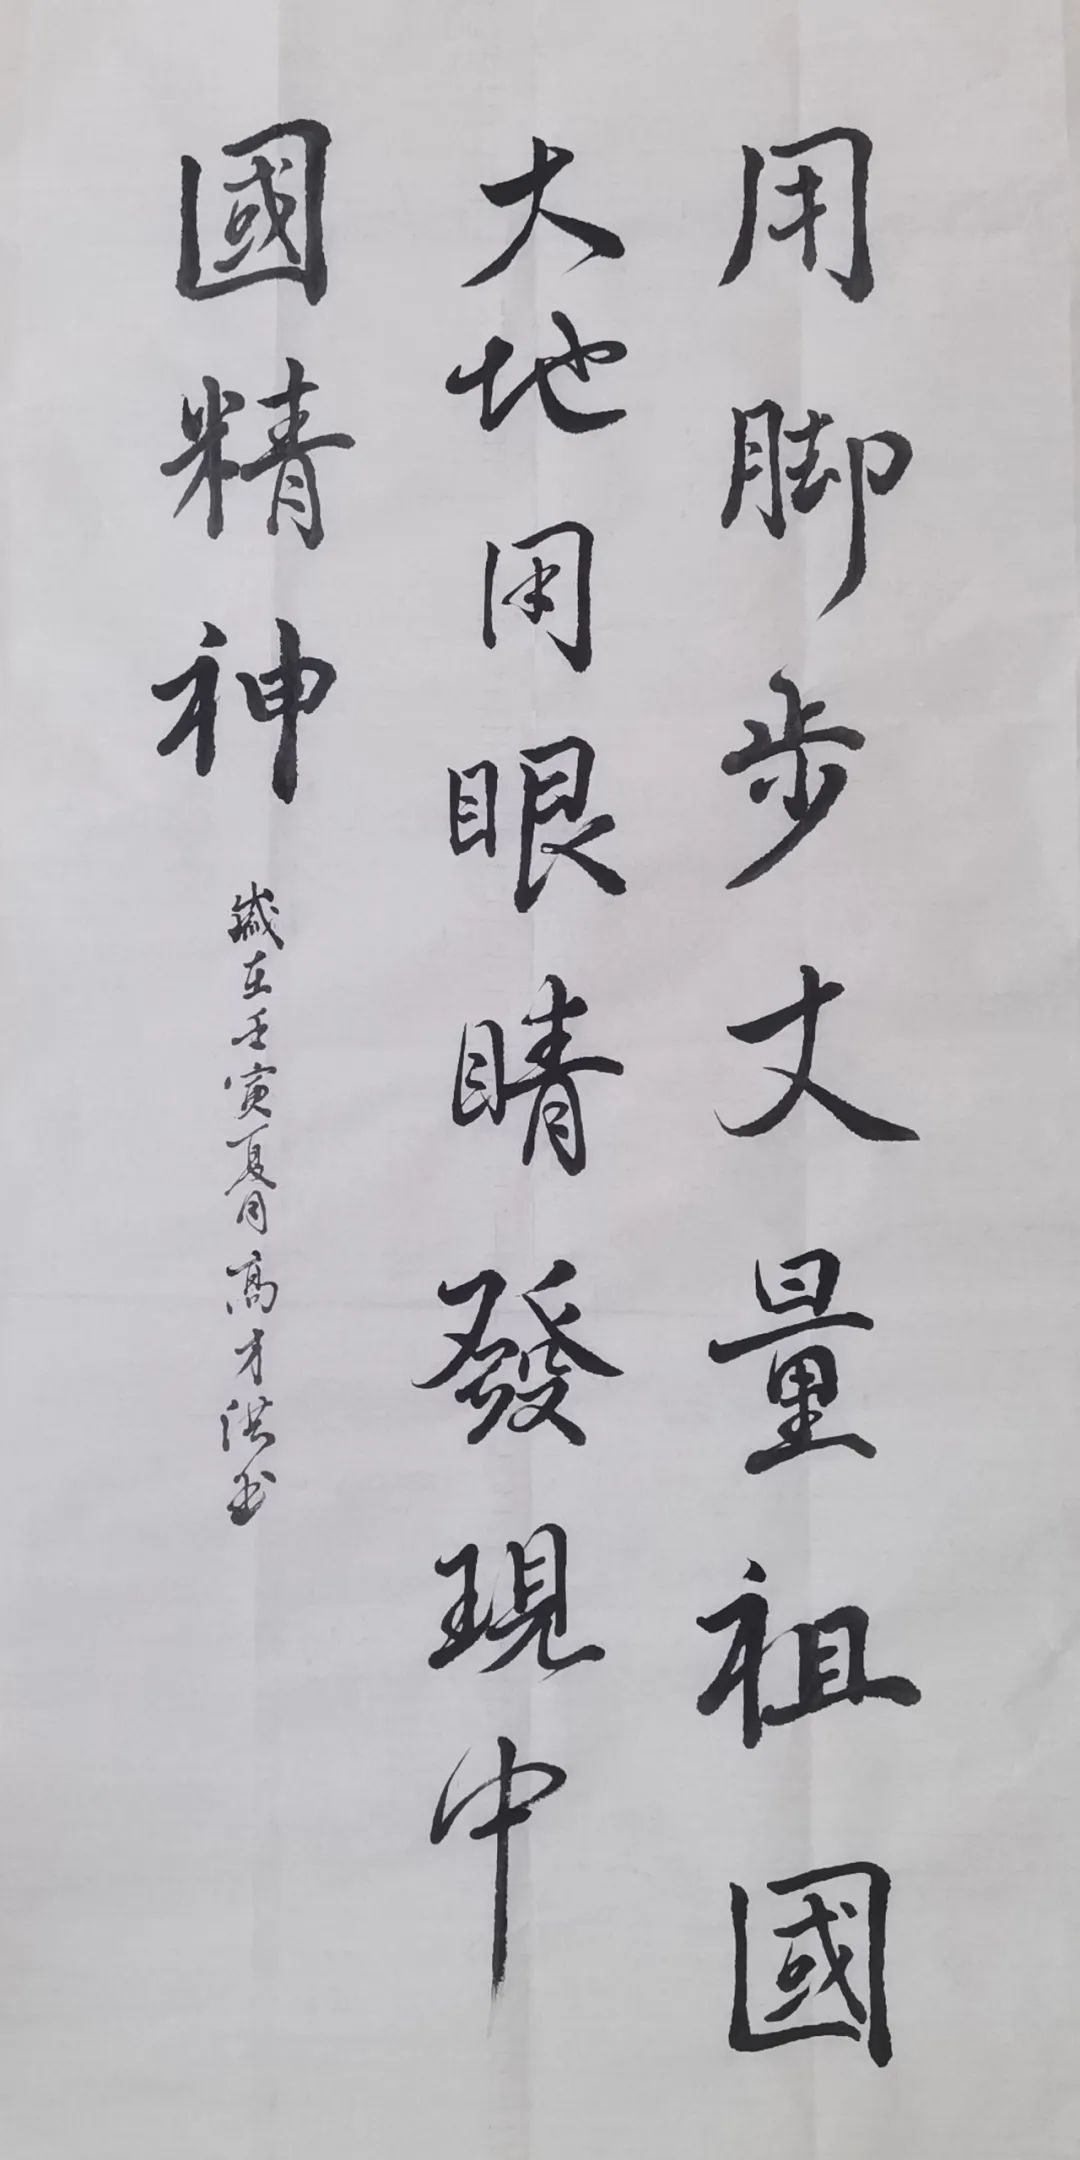 用脚步丈量祖國
大地用眼睛發現中
國精神
歲在壬寅夏月高才洪书